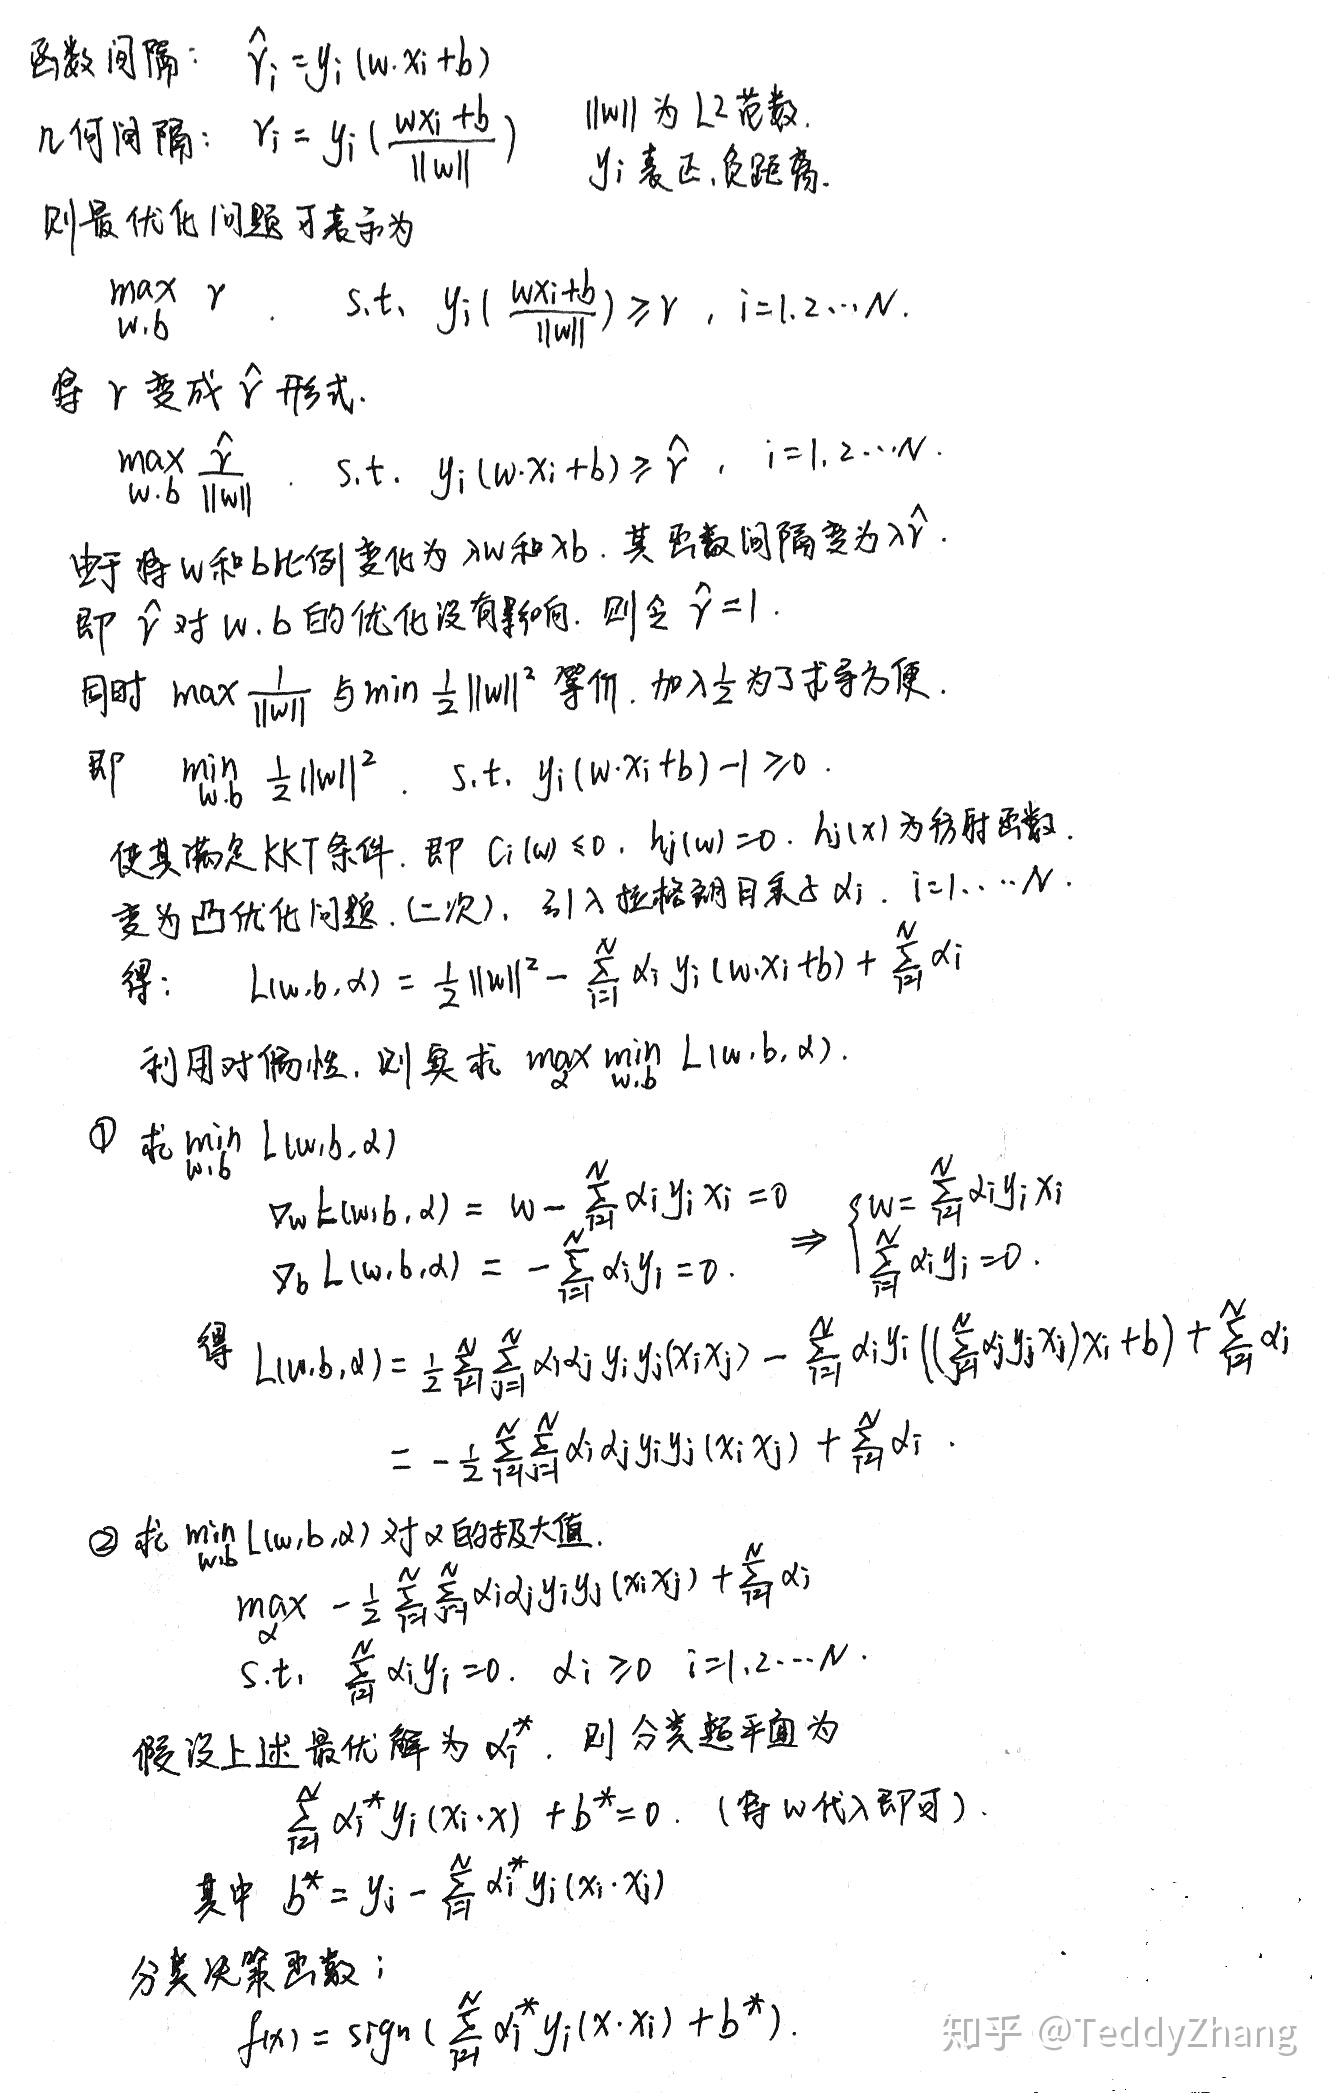 函数间隔: γ̂ᵢ = yᵢ(w·xᵢ+b)
几何间隔: γᵢ = yᵢ((wxᵢ+b)/||w||)  ||w|| 为 L2 范数.
yᵢ 表正、负距离.
则最优化问题可表示为
max_{w.b} γ . s.t. yᵢ((wxᵢ+b)/||w||) ≥ γ , i=1.2…N.
将 γ 变成 γ̂ 形式.
max_{w.b} γ̂/||w|| . s.t. yᵢ(w·xᵢ+b) ≥ γ̂ , i=1.2…N.
由于将w和b比例变化为λw和λb. 其函数间隔变为λγ̂.
即 γ̂ 对 w.b 的优化没有影响. 则令 γ̂=1.
同时 max 1/||w|| 与 min ½||w||² 等价. 加入½为了求导方便.
即 min_{w.b} ½||w||² . s.t. yᵢ(w·xᵢ+b)-1 ≥ 0 .
使其满足KKT条件. 即 Cᵢ(w) ≤ 0 . hⱼ(w)=0 . hⱼ(x)为仿射函数.
变为凸优化问题.(二次). 引入拉格朗日乘子 αᵢ . i=1.…N .
得: L(w,b,α) = ½||w||² - Σ_{i=1}^N αᵢ yᵢ(w·xᵢ+b) + Σ_{i=1}^N αᵢ
利用对偶性, 则要求 max_α min_{w,b} L(w,b,α).
① 求 min_{w,b} L(w,b,α)
∇_w L(w,b,α) = w - Σ_{i=1}^N αᵢyᵢxᵢ = 0
∇_b L(w,b,α) = - Σ_{i=1}^N αᵢyᵢ = 0.
⇒ { w = Σ_{i=1}^N αᵢyᵢxᵢ
Σ_{i=1}^N αᵢyᵢ = 0.
得 L(w,b,α) = ½ Σ_{i=1}^N Σ_{j=1}^N αᵢαⱼyᵢyⱼ(xᵢxⱼ) - Σ_{i=1}^N αᵢyᵢ((Σ_{j=1}^N αⱼyⱼxⱼ)xᵢ+b) + Σ_{i=1}^N αᵢ
= -½ Σ_{i=1}^N Σ_{j=1}^N αᵢαⱼyᵢyⱼ(xᵢxⱼ) + Σ_{i=1}^N αᵢ .
② 求 min_{w,b} L(w,b,α) 对 α 的极大值.
max_α -½ Σ_{i=1}^N Σ_{j=1}^N αᵢαⱼyᵢyⱼ(xᵢxⱼ) + Σ_{i=1}^N αᵢ
s.t. Σ_{i=1}^N αᵢyᵢ = 0. αᵢ ≥ 0 i=1.2…N.
假设上述最优解为 αᵢ*. 则分类超平面为
Σ_{i=1}^N αᵢ*yᵢ(xᵢ·x) + b* = 0. (将w代入即可).
其中 b* = yⱼ - Σ_{i=1}^N αᵢ*yᵢ(xᵢ·xⱼ)
分类决策函数;
f(x) = sign(Σ_{i=1}^N αᵢ*yᵢ(x·xᵢ) + b*).
知乎 @TeddyZhang